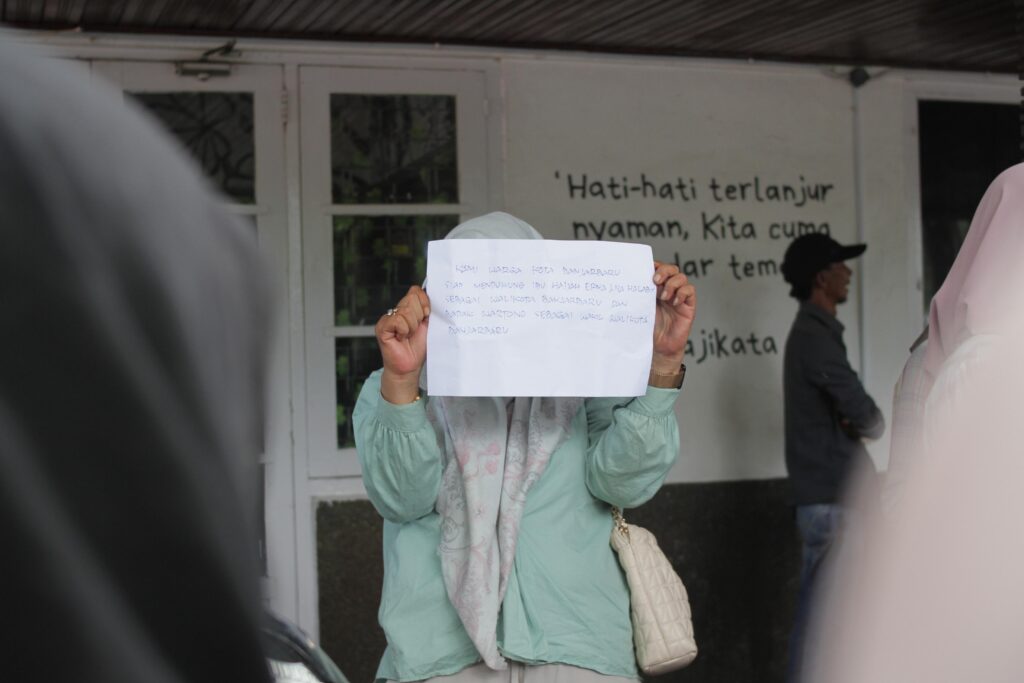 KAMI WARGA KOTA BANJARBARU
SIAP MENDUKUNG IBU HAJJAH ERNA LISA HALABY
SEBAGAI WALIKOTA BANJARBARU DAN
BAPAK WARTONO SEBAGAI WAKIL WALIKOTA
BANJARBARU
'Hati-hati terlanjur
nyaman, Kita cuma
dar tem
ajikata